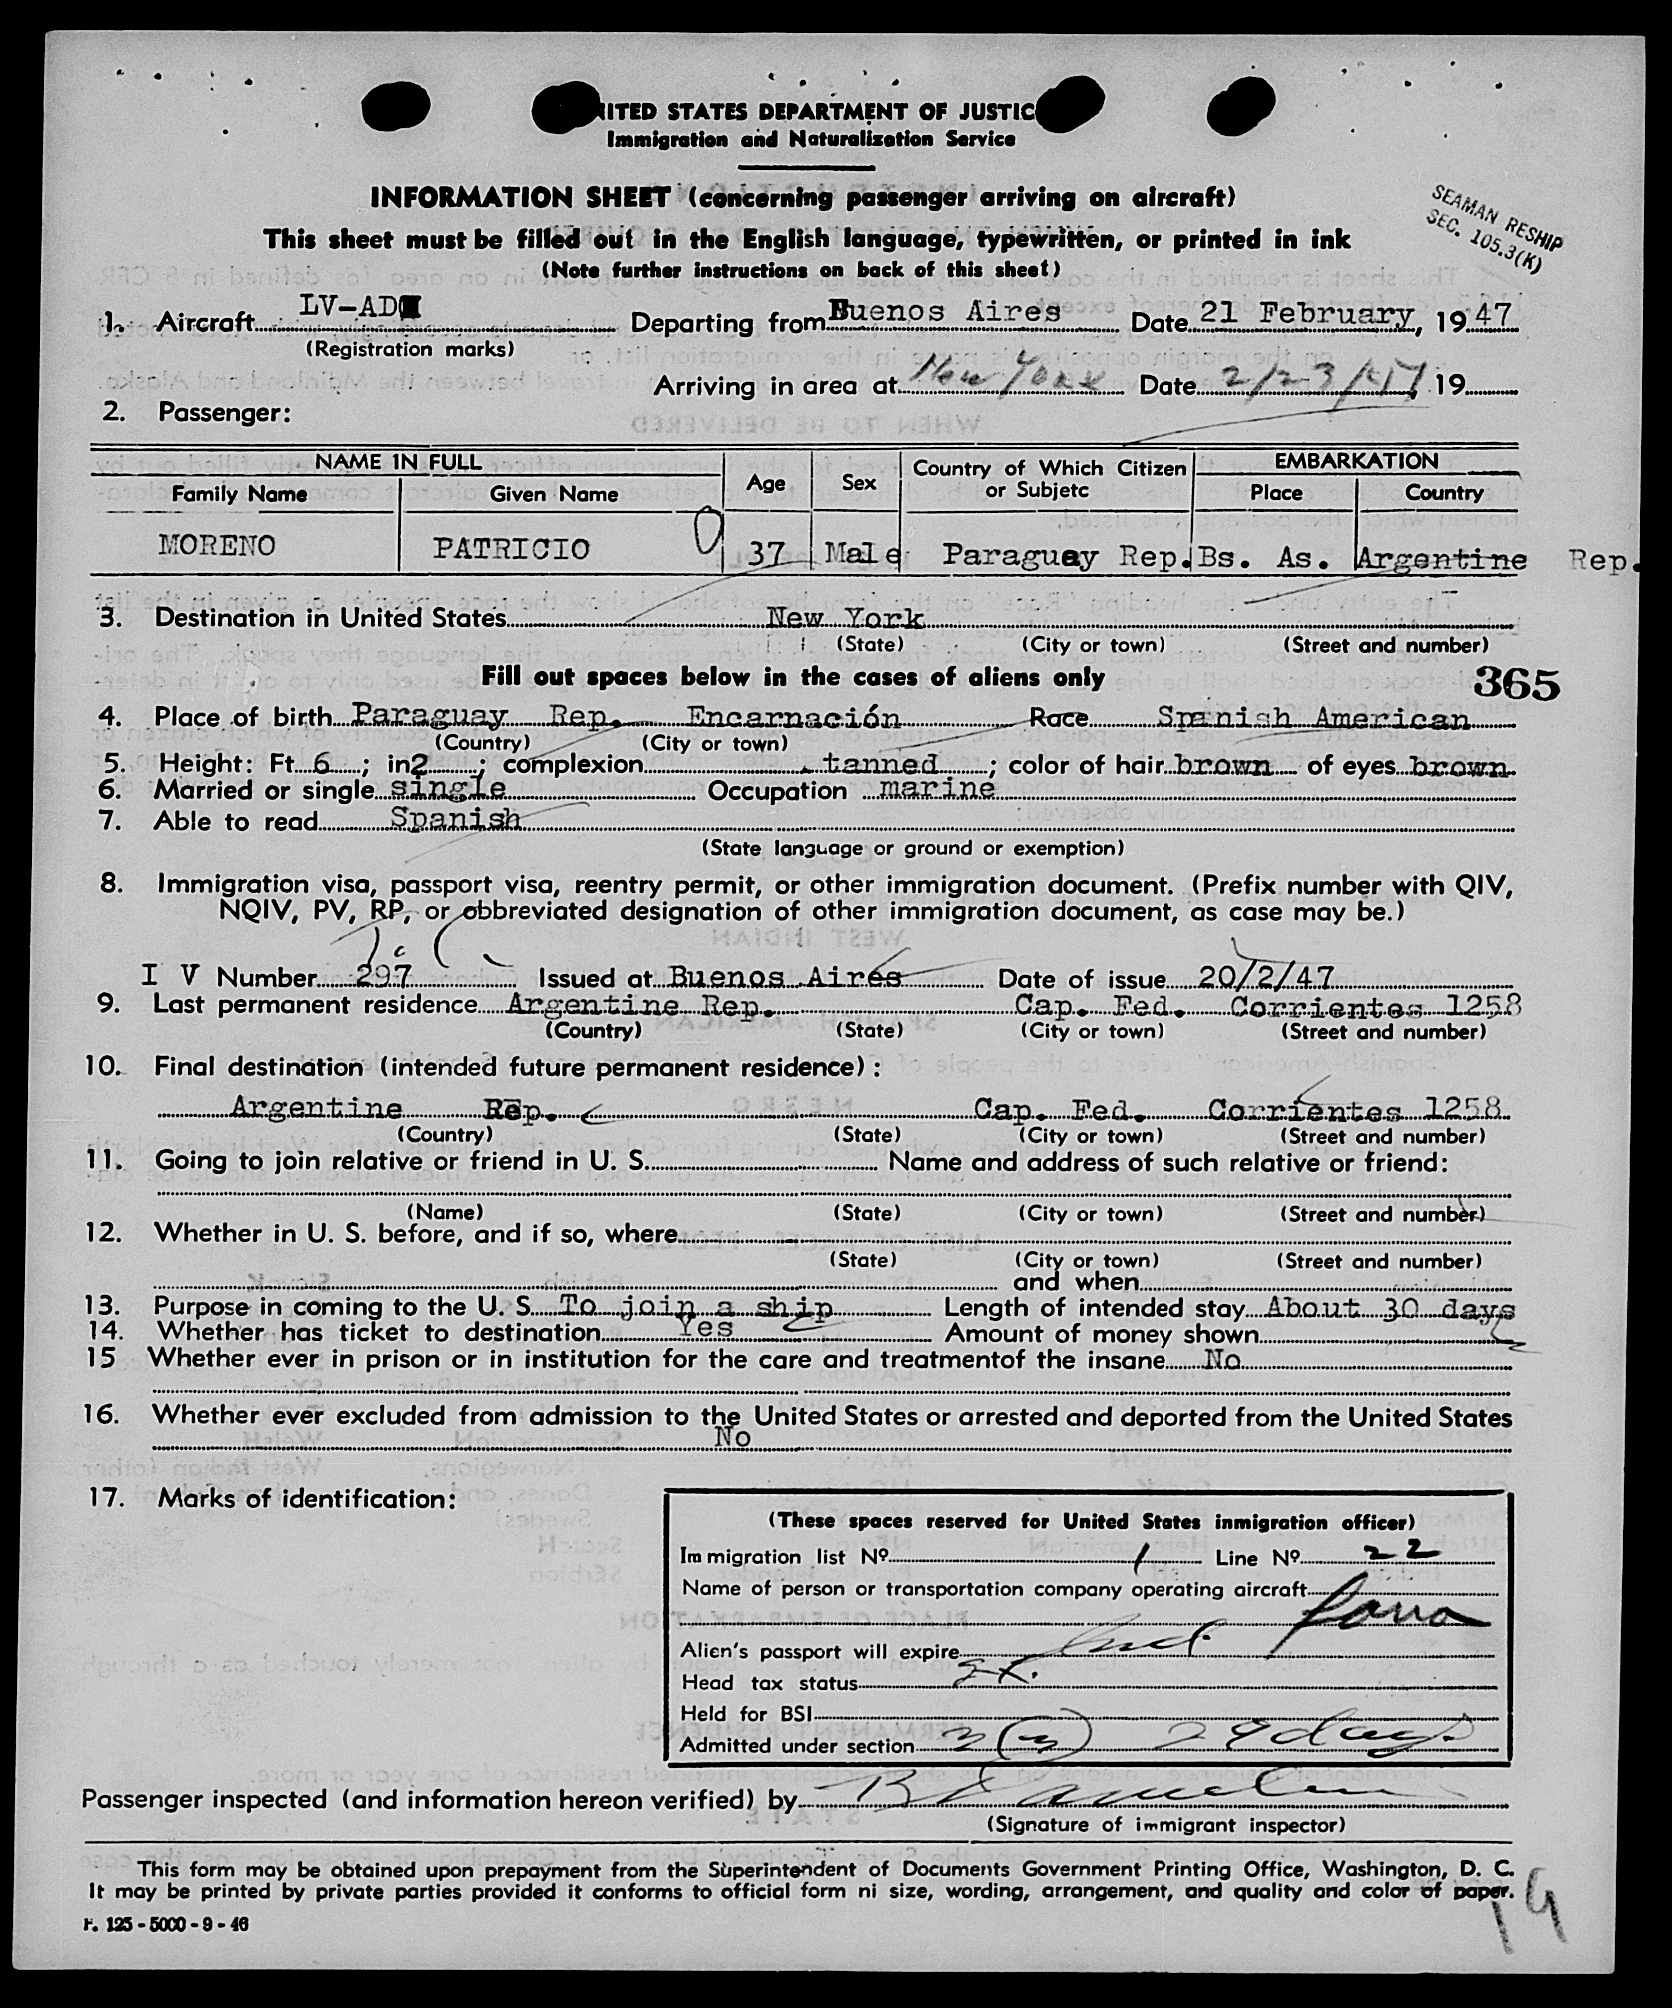 UNITED STATES DEPARTMENT OF JUSTIC
Immigration and Naturalization Service
INFORMATION SHEET (concerning passenger arriving on aircraft)
This sheet must be filled out in the English language, typewritten, or printed in ink
(Note further instructions on back of this sheet)
SEAMAN RESHIP
SEC. 105.3(K)
1. Aircraft LV-AD Departing from Buenos Aires Date 21 February, 19 47
(Registration marks)
Arriving in area at New York Date 2/23/47 19
2. Passenger:
NAME IN FULL Age Sex Country of Which Citizen or Subjetc EMBARKATION
Family Name Given Name Place Country
MORENO PATRICIO 37 Male Paraguay Rep. Bs. As. Argentine Rep.
3. Destination in United States New York
(State) (City or town) (Street and number)
Fill out spaces below in the cases of aliens only 365
4. Place of birth Paraguay Rep. Encarnación Race Spanish American
(Country) (City or town)
5. Height: Ft. 6 ; in 2 ; complexion tanned ; color of hair brown of eyes brown
6. Married or single single Occupation marine
7. Able to read Spanish
(State language or ground or exemption)
8. Immigration visa, passport visa, reentry permit, or other immigration document. (Prefix number with QIV,
NQIV, PV, RP, or abbreviated designation of other immigration document, as case may be.)
I V Number 297 Issued at Buenos Aires Date of issue 20/2/47
9. Last permanent residence Argentine Rep. Cap. Fed. Corrientes 1258
(Country) (State) (City or town) (Street and number)
10. Final destination (intended future permanent residence):
Argentine Rep. Cap. Fed. Corrientes 1258
(Country) (State) (City or town) (Street and number)
11. Going to join relative or friend in U. S. Name and address of such relative or friend:
(Name) (State) (City or town) (Street and number)
12. Whether in U. S. before, and if so, where
(State) (City or town) (Street and number)
and when
13. Purpose in coming to the U. S. To join a ship Length of intended stay About 30 days
14. Whether has ticket to destination Yes Amount of money shown
15 Whether ever in prison or in institution for the care and treatmentof the insane No
16. Whether ever excluded from admission to the United States or arrested and deported from the United States
No
17. Marks of identification:
(These spaces reserved for United States inmigration officer)
Immigration list Nº 1 Line Nº 22
Name of person or transportation company operating aircraft
Fama
Alien's passport will expire Ind.
Head tax status Ex.
Held for BSI
Admitted under section 3(3) 29 days
Passenger inspected (and information hereon verified) by
(Signature of immigrant inspector)
This form may be obtained upon prepayment from the Superintendent of Documents Government Printing Office, Washington, D. C.
It may be printed by private parties provided it conforms to official form ni size, wording, arrangement, and quality and color of paper.
F. 125 - 5000 - 9 - 46
19